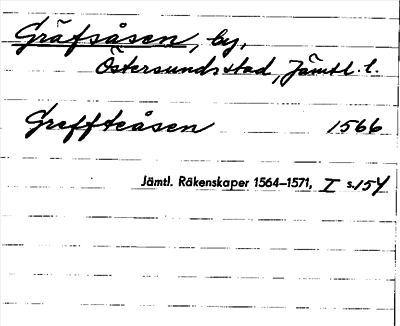 Gräfsåsen, by,
Östersunds stad, Jämtl. l.
Greffteåsen 1566
Jämtl. Räkenskaper 1564–1571, I s.154